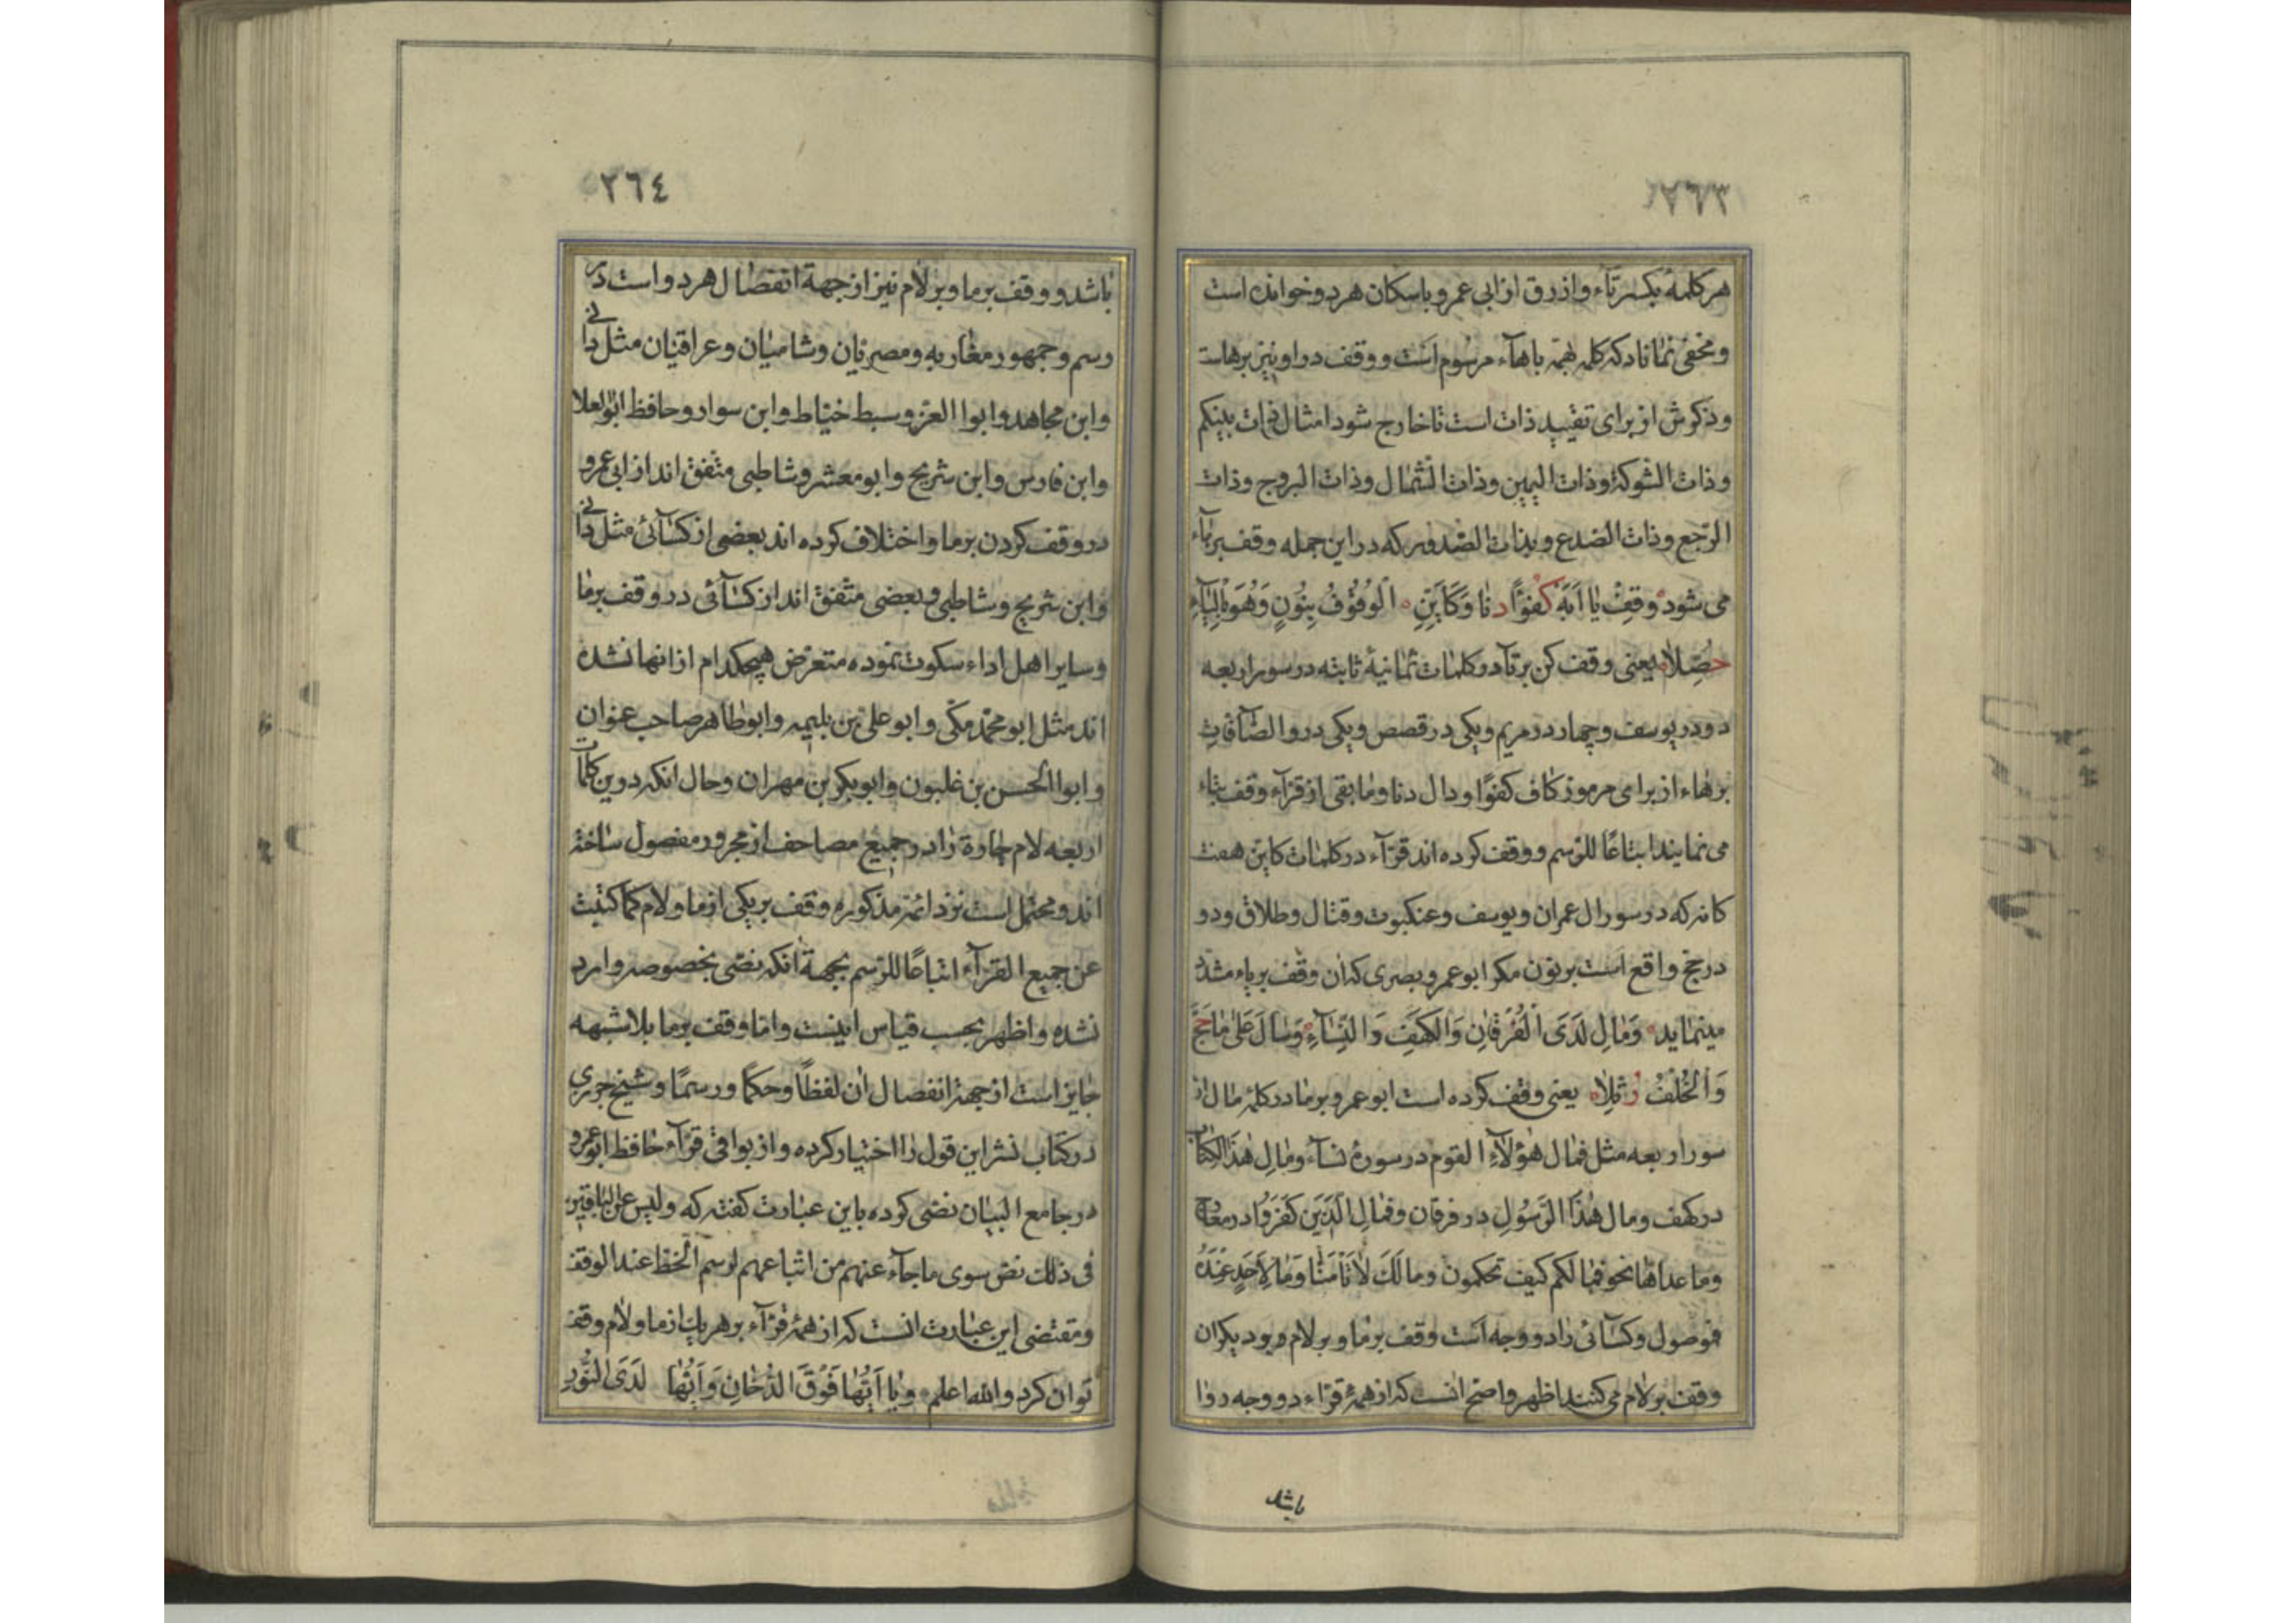 ٢٦٣
هر کلمهٔ بکسر تآء و ازرق از ابی عمرو باسکان هر دو خوانده است
و مخفی نماناد که کلمه بهجة باهآء مرسوم است و وقف در او نیز برهاست
و ذکرش از برای تقیید ذات است تا خارج شود امثال ذات بینکم
و ذات الشوکة و ذات الیمین و ذات الشمال و ذات البروج و ذات
الرجع و ذات الصدع و بذات الصدور که در این جمله وقف بر تآء
می شود وَقِفْ یٰا اَبَهْ کُفْوًا دنٰا وَ کَاَیِّنِ الْوُقُوْفُ بِنُونٍ وَهُوَ بِالْیٰآءِ
حُصِّلاٰ یعنی وقف کن بر تآ در کلمات ثمانیهٔ ثابته در سور اربعه
دو در یوسف و چهار در مریم و یکی در قصص و یکی در والصٰآفات
بر هاء از برای مرموز کاف کفوًا و دال دنا و مابقی از قرآء وقف بتاء
می نمایند ابتاعًا للرّسم و وقف کرده اند قرّآء در کلمات کاین هفت
کانه که در سور ال عمران و یوسف و عنکبوت و قتال و طلاق و دو
در حج واقع است بر نون مکر ابو عمرو بصری که ان وقف بر یاء مشدد
مینماید وَمٰالِ لَدَی الْفُرْقٰانِ وَالْکَهْفِ وَ النِّسٰآءِ وَسٰالَ عَلیٰ مٰا حَجَّ
وَالْخُلْفُ رُتِّلاٰ یعنی وقف کرده است ابو عمرو بر ما در کلمهٔ مٰال از
سور اربعه مثل فمٰال هٰؤلآءِ القوم در سورهٔ نسآء و مٰالِ هٰذَا الکِتٰابِ
در کهف و مال هٰذَا الرَّسُولِ در فرقان و فمٰالِ الَّذینَ کَفَرُوا در معٰارج
و ما عداها نحو فمٰا لکم کیف تحکمون و ما لَکَ لاٰ تَاْمَنّٰا وَمٰا لِاَحَدٍ عِنْدَهُ
موصول و کسٰآئی را دو وجه است وقف بر مٰا و بر لام و بود یکران
وقف بر لام می کنند اظهر و اصح انست که از همهٔ قرّاء دو وجه روا
باشد
٢٦٤
باشد و وقف بر ما و بر لام نیز از جهة انفصٰال هر دو است در
رسم و جمهور مغاربه و مصریان و شامیان و عراقیان مثل دانی
و ابن مجاهد و ابوا العز و سبط خیاط و ابن سوار و حافظ ابو العلا
و ابن فارس و ابن شریح و ابو معشر و شاطبی متّفق اند از ابی عمرو
در وقف کردن بر ما و اختلاف کرده اند بعضی از کسٰآئی مثل دانی
و ابن شریح و شاطبی و بعضی متّفق اند از کسٰآئی در وقف بر مٰا
و سایر اهل اداء سکوت نموده متعرض هیچکدام از انها نشده
اند مثل ابو محمّد مکّی و ابو علی بن بلیمه و ابو طٰاهر صاحب عنوان
و ابوا الحسن بن غلبون و ابو بکر بن مهران و حال انکه در ین کلمات
اربعه لام جارة را در جمیع مصاحف از مجرور مفصول ساخته
اند و محتمل است نزد ائمه مذکوره وقف بر یکی از ما و لام کما کتبت
عن جمیع القرّآء اتباعًا للرّسم بجهة انکه نصّی بخصوصه وارد
نشده و اظهر بحسب قیاس اینست و امّا وقف بر ما بلا شبهه
جایز است از جهة انفصال ان لفظًا و حکمًا و رسمًا و شیخ جزری
در کتاب نشر این قول را اختیار کرده و از بواقی قرّآء حافظ ابو عمرو
در جامع البیان نصّی کرده باین عبارت کفته که و لیس عن الباقین
فی ذلک نص سوی ما جآء عنهم من اتباعهم لرسم الخط عند الوقف
و مقتضی این عبارت انست که از همهٔ قرّآء بر هر یک از ما و لام وقف
توان کرد و الله اعلم و یٰا اَیُّهٰا فَوْقَ الدُّخٰانِ وَ اَیُّهٰا لَدَی النُّورِ